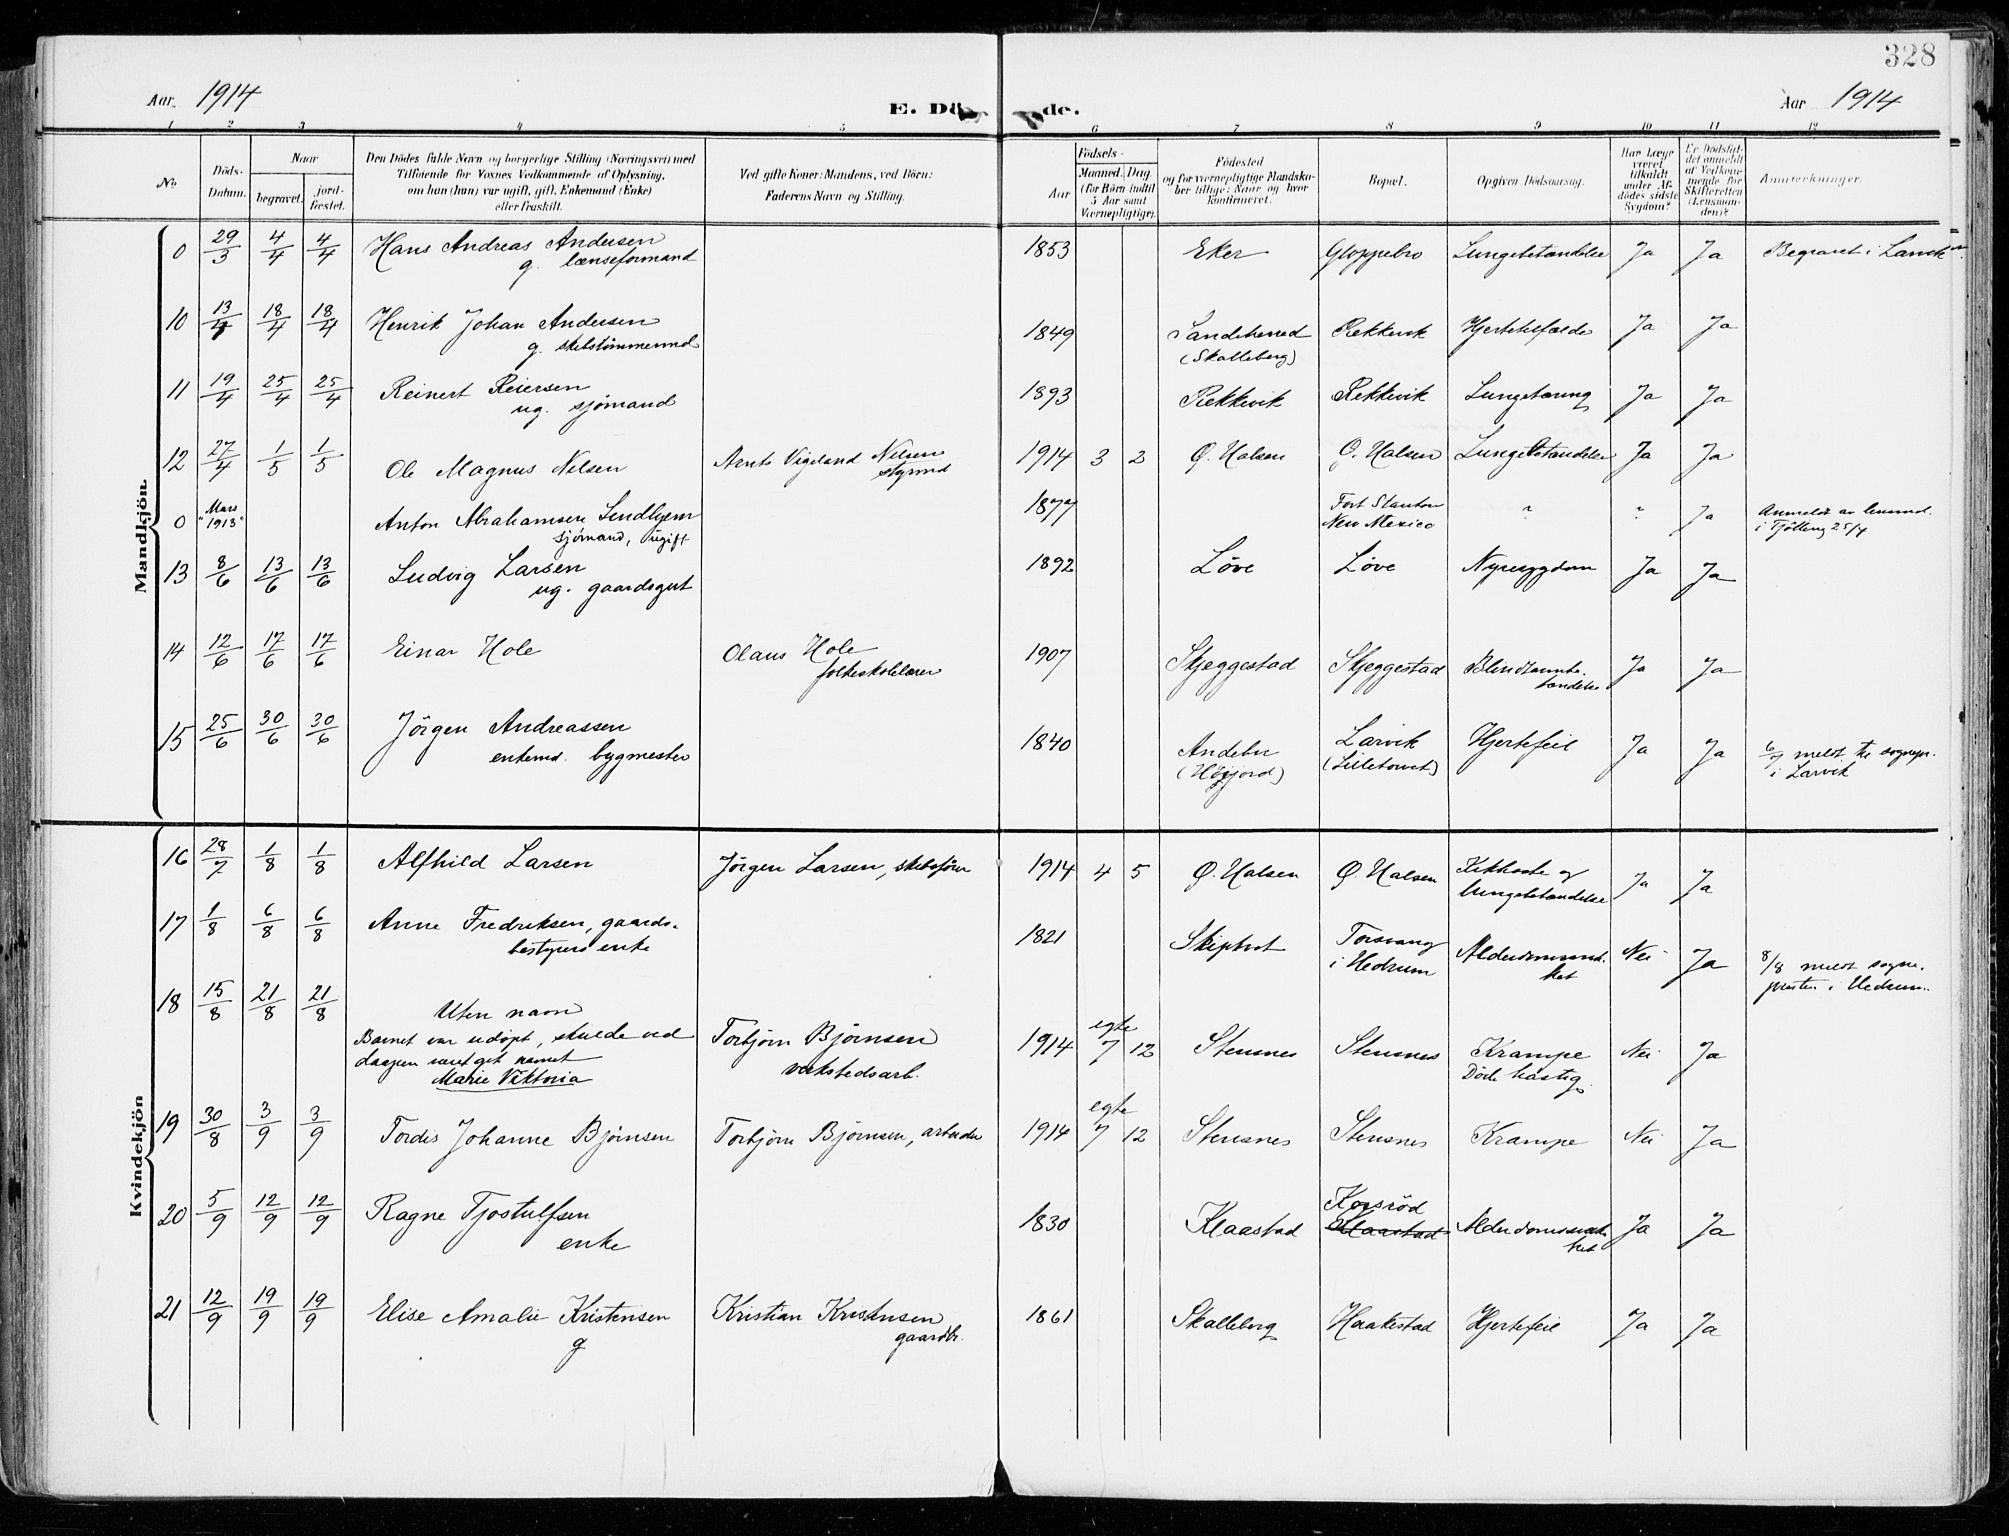 328
Aar. 1914
E. Dö de.
Aar 1914
1 2 3 4 5 6 7 8 9 10 11 12
No.
Döds-
Datum.
Naar
begravet.
jord-
fæstet.
Den Dödes fulde Navn og borgerlige Stilling (Næringsvei) med
Tilföiende for Voxnes Vedkommende af Oplysning,
om han (hun) var ugift, gift, Enkemand (Enke)
eller fraskilt.
Ved gifte Koner: Mandens, ved Börn:
Faderens Navn og Stilling.
Födsels-
Aar
Maaned. Dag
(for Börn indtil
5 Aar samt
Værnepligtige).
Födested
og for værnepligtige Mandska-
ber tillige: Naar og hvor
konfirmeret.
Bopæl.
Opgiven Dödsaarsag.
Har Læge
været
tilkaldt
under Af-
dödes sidste
Sygdom?
Er Dödsfal-
det anmeldt
af Vedkom-
mende for
Skifteretten
(Lensman-
den)?
Anmerkninger.
Mandkjön.
0 29/3 4/4 4/4 Hans Andreas Andersen 1853 Eker Gloppebro Lungebetændelse Ja Ja Begravet i
g. lænseformand
10 13/4 18/4 18/4 Henrik Johan Andersen 1849 Sandeherred Rekkevik Hjertetilfælde Ja Ja
g. skibstømmermd (Skalleberg)
11 19/4 25/4 25/4 Reinert Reiersen 1893 Rekkevik Rekkevik Lungetæring Ja Ja
ug. sjømand
12 27/4 1/5 1/5 Ole Magnus Nilsen Arnts Vigeland Nilsen 1914 3 2 Ø. Halsen Ø. Halsen Lungebetændelse Ja Ja
styrmd
0 "Mars 1913" Anton Abrahamsen 1877 Fort Stanton ? ? Ja Anmeldt av lensmd.
sjømand, ugift New Mexico i Tjølling 25/4
13 8/6 13/6 13/6 Ludvig Larsen 1892 Löve Löve Nyresygdom Ja Ja
ug. gaardsgut
14 12/6 17/6 17/6 Einar Hole Olaus Hole 1907 Skjeggestad Skjeggestad Blindtarmbe- Ja Ja
folkeskolelærer tændelse
15 25/6 30/6 30/6 Jörgen Andreassen 1840 Andebu Larvik Hjertefeil Ja Ja 6/7 meldt til sognepr.
enkemd. bygmester (Höijord) (Lilletorvet) i Larvik
Kvindekjön
16 28/7 1/8 1/8 Alfhild Larsen Jörgen Larsen, skibsförer 1914 4 5 Ø. Halsen Ø. Halsen Kikhoste og Ja Ja
lungebetændelse
17 1/8 6/8 6/8 Anne Fredriksen, gaards- 1821 Skiptvet Torsvang Alderdomssvak- Nei Ja 8/8 meldt sogne-
bestyrers enke i Hedrum het presten i Hedrum.
18 15/8 21/8 21/8 Uten navn
Barnet var udöpt, skulde ved Torbjörn Björnsen 1914 egte 7 12 Stensnes Stensnes Krampe Nei Ja
daapen været git navnet verkstedsarb. Döde hastig
Marie Viktoria
19 30/8 3/9 3/9 Tordis Johanne Bjørnsen Torbjørn Bjørnsen, arbeider 1914 egte 7 12 Stensnes Stensnes Krampe Nei Ja
20 5/9 12/9 12/9 Ragne Tjostulfsen 1830 Klaastad Korsröd Klaastad Alderdomssvak- Ja Ja
enke het
21 12/9 19/9 19/9 Elise Amalie Kristensen Kristian Kristensen 1861 Skalleberg Haakestad Hjertefeil Ja Ja
g gaardbr.